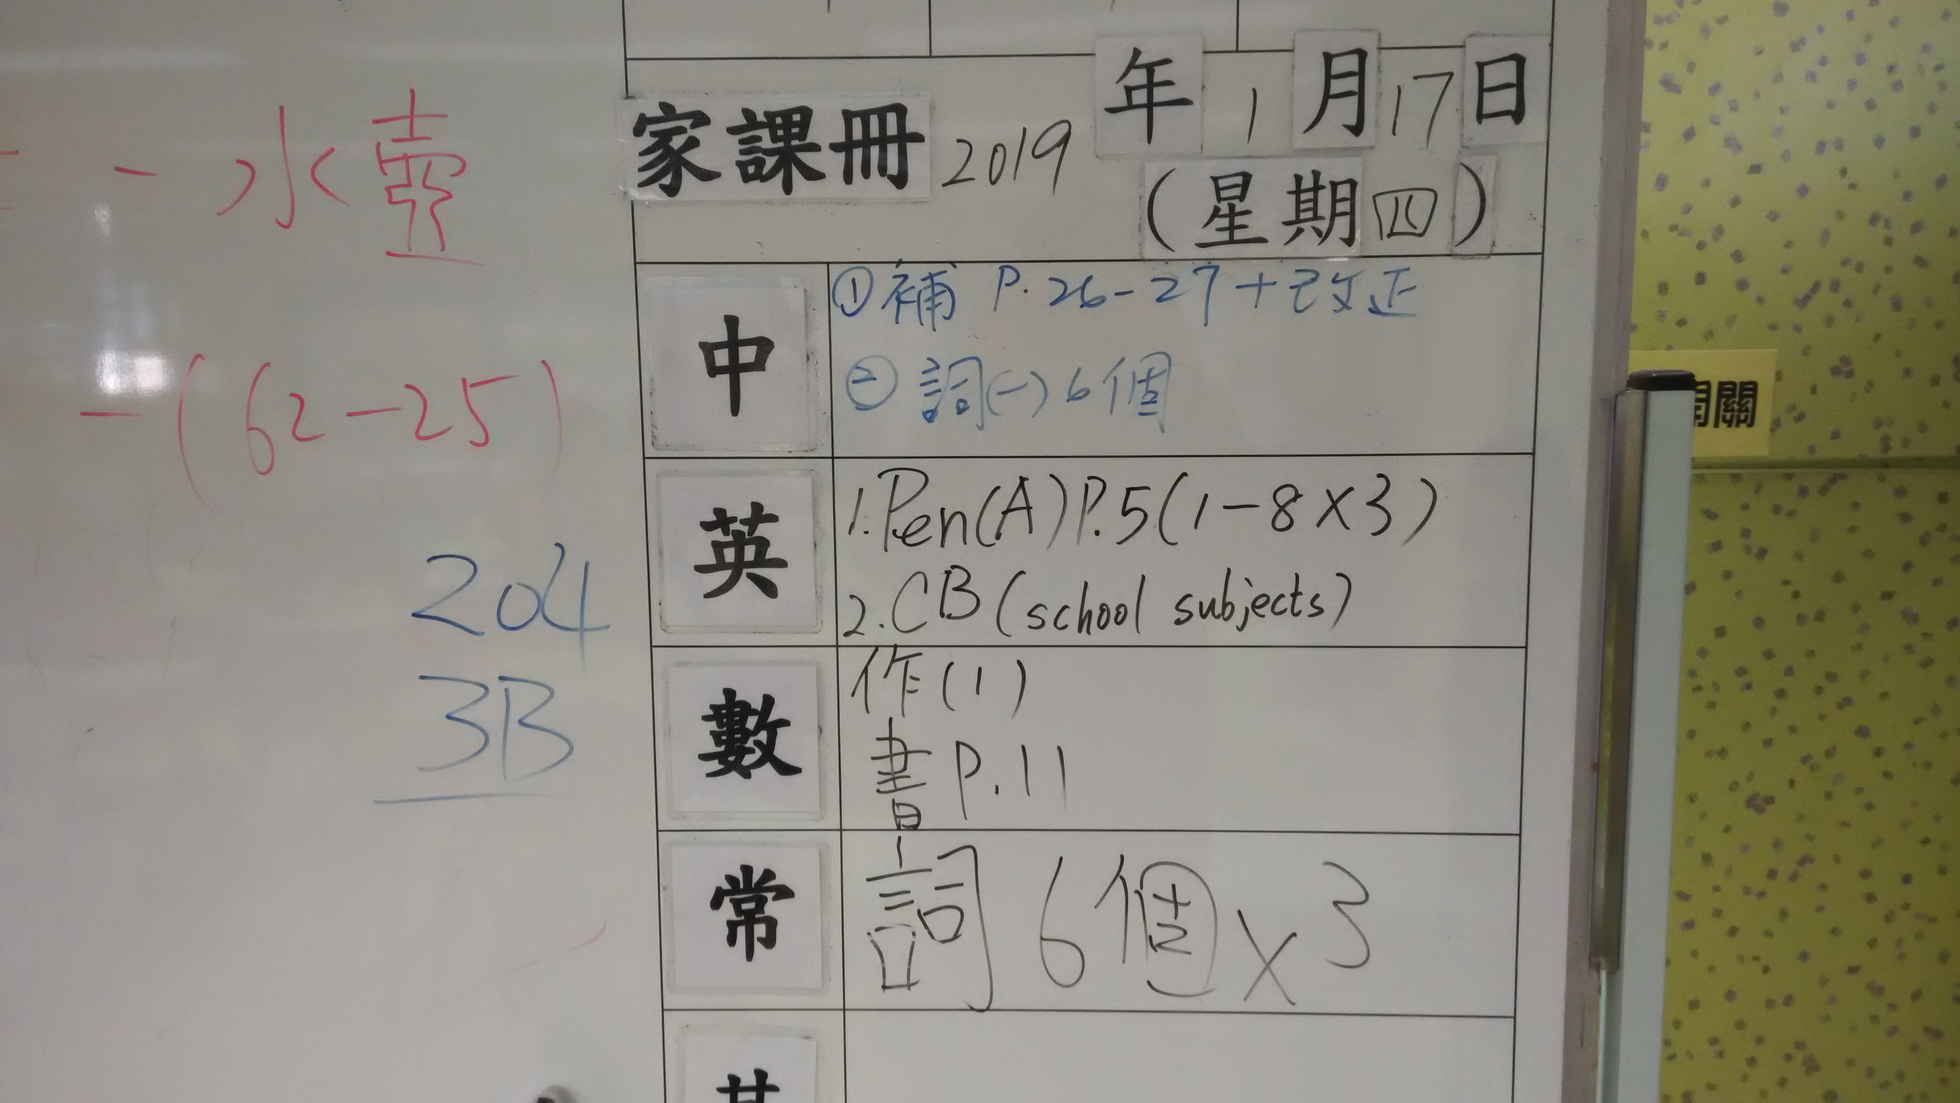 - 水壺
-(62-25)
204
3B
家課冊 2019 年 1 月 17 日
(星期四)
中
① 補 P.26-27+已改正
② 詞(一) 6個
英
1. Pen(A) P.5 (1-8 x3)
2. CB (school subjects)
數
作(1)
書 P.11
常
詞 6個 x3
開關